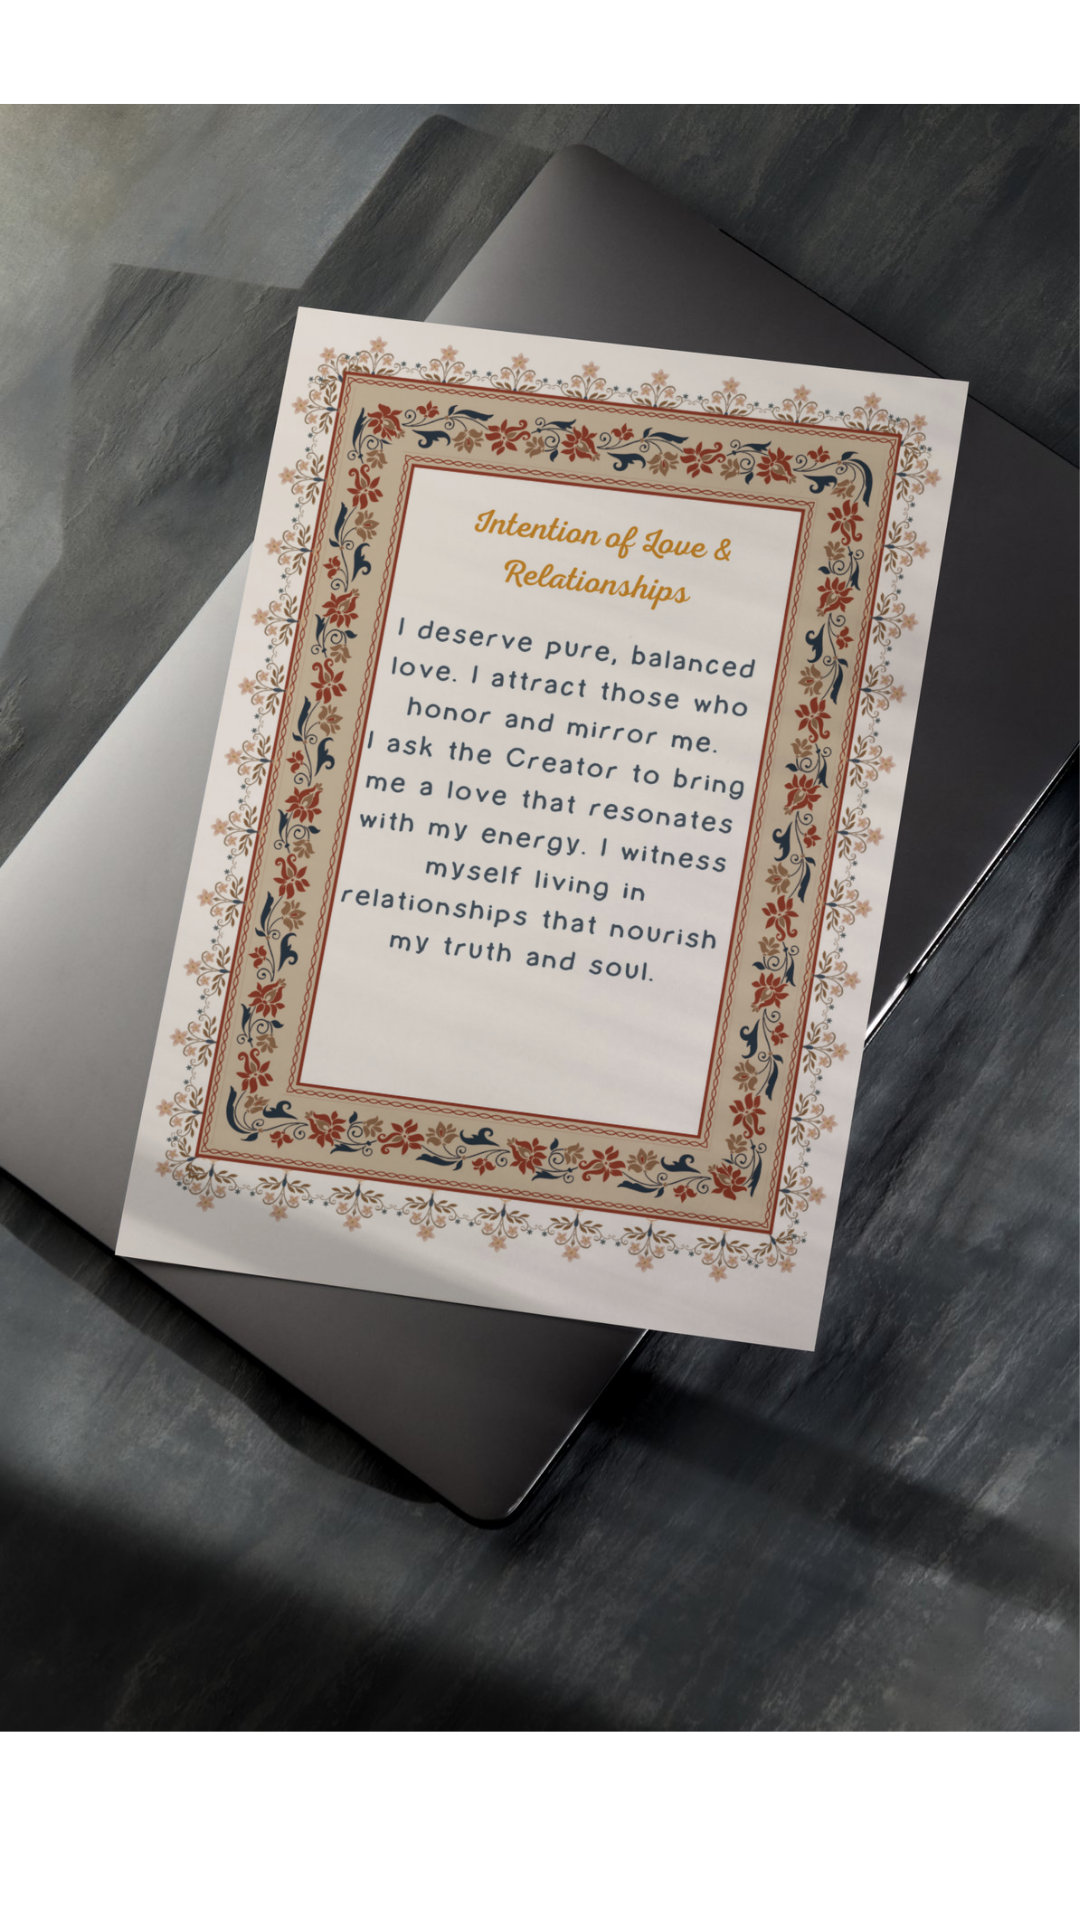 Intention of Love &
Relationships
I deserve pure, balanced
love. I attract those who
honor and mirror me.
I ask the Creator to bring
me a love that resonates
with my energy. I witness
myself living in
relationships that nourish
my truth and soul.